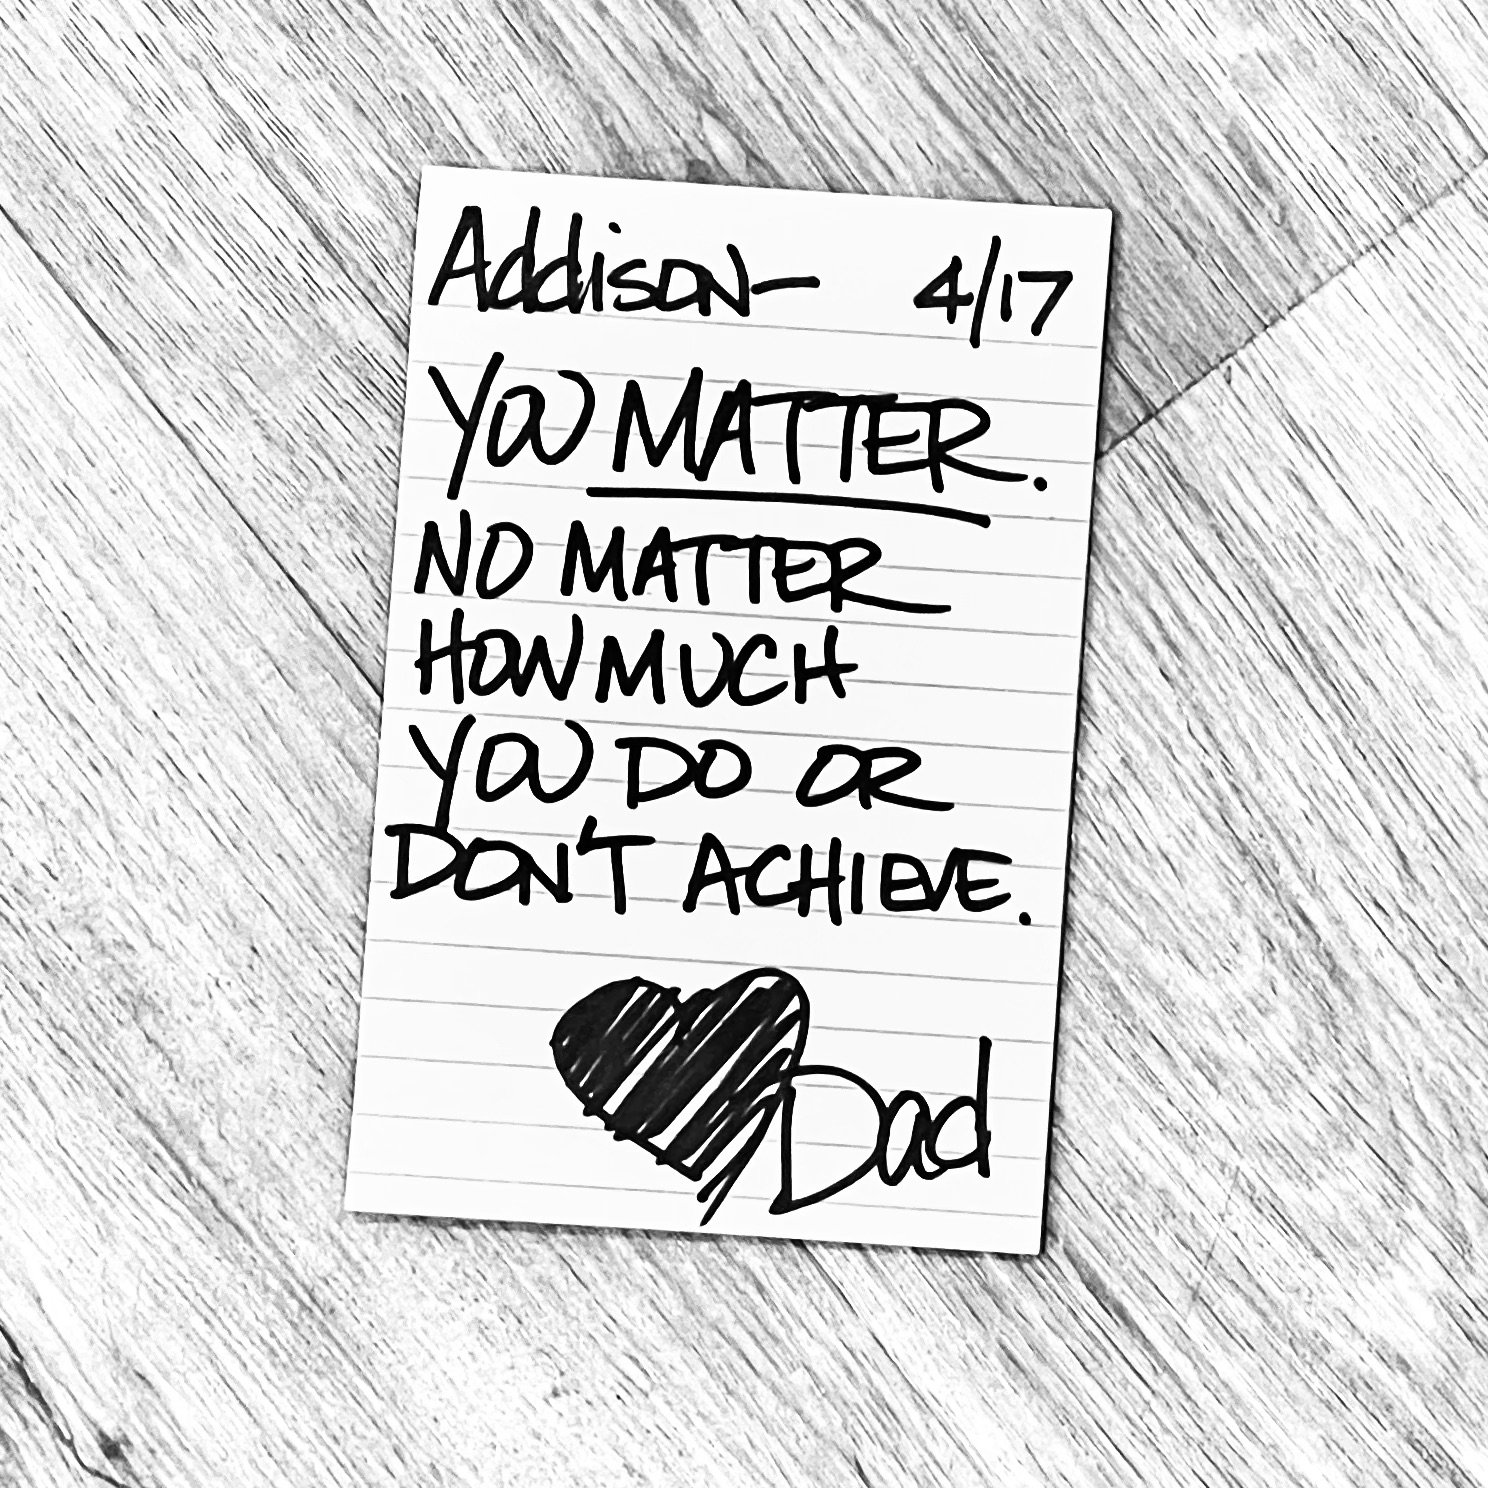 Addison- 4/17
YOU MATTER.
NO MATTER
HOW MUCH
YOU DO OR
DON'T ACHIEVE.
Dad